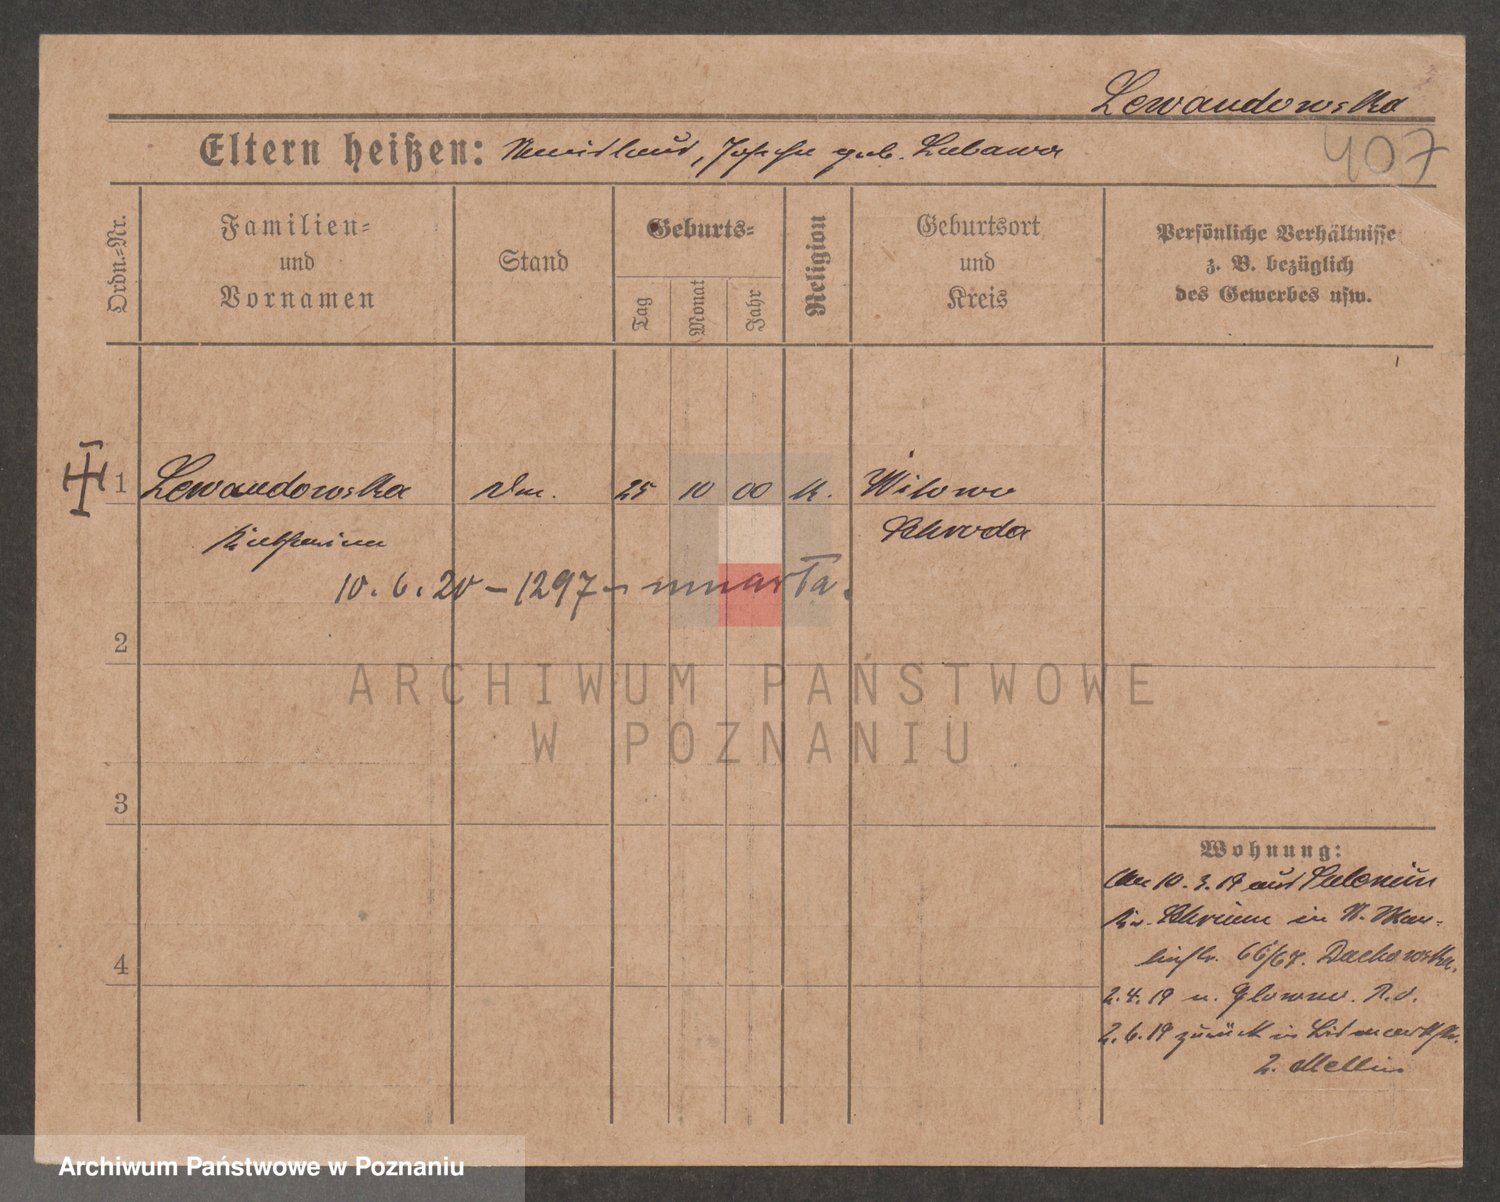 Lewandowska
407
Eltern heißen: Josepha geb. Lubawa
Ordn.-Nr.
Familien-
und
Vornamen
Stand
Geburts-
Tag
Monat
Jahr
Religion
Geburtsort
und
Kreis
Persönliche Verhältnisse
z. B. bezüglich
des Gewerbes usw.
1 Lewandowska 25 10 00 k. Witowo
Katharina Schroda
10.6.20 – 1297 – umarła.
2
3
4
Wohnung:
10.3.19 aus
Kr. Schrimm in N. Mar-
66/67. Dachowska.
2.4.19 n. Glowno.
2.6.19 zurück in Bismarckstr.
2.
ARCHIWUM PAŃSTWOWE
W POZNANIU
Archiwum Państwowe w Poznaniu